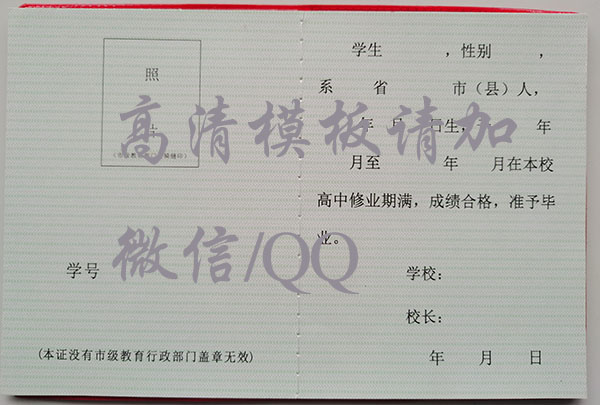 照
片
学号
(本证没有市级教育行政部门盖章无效)
学生 ,性别 ,
系 省 市(县)人,
年 月 日生, 年
月至 年 月在本校
高中修业期满,成绩合格,准予毕
业。
学校:
校长:
年 月 日
高清模板请加
微信/QQ